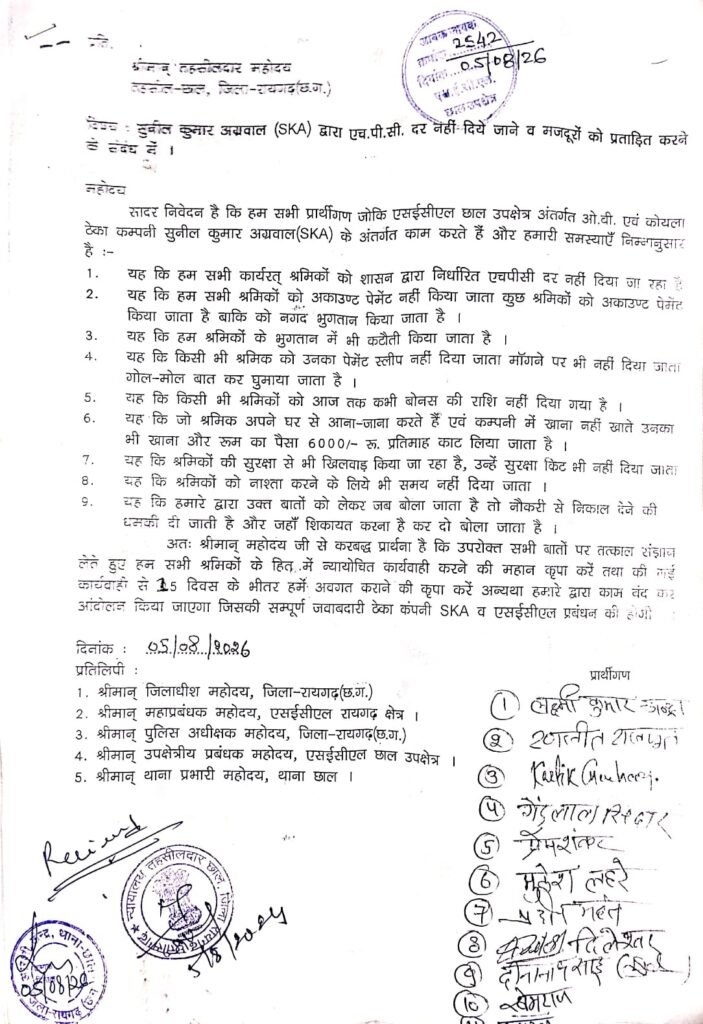 प्रति,
श्रीमान् तहसीलदार महोदय
तहसील-छाल, जिला-रायगढ़(छ.ग.)
आवक जावक
2542
दिनांक 05/08/26
एस.ई.सी.एल.
छाल उपक्षेत्र
विषय : सुनील कुमार अग्रवाल (SKA) द्वारा एच.पी.सी. दर नहीं दिये जाने व मजदूरों को प्रताड़ित करने
के संबंध में ।
महोदय
सादर निवेदन है कि हम सभी प्रार्थीगण जोकि एसईसीएल छाल उपक्षेत्र अंतर्गत ओ.बी. एवं कोयला
ठेका कम्पनी सुनील कुमार अग्रवाल(SKA) के अंतर्गत काम करते हैं और हमारी समस्याएँ निम्नानुसार
है :-
1. यह कि हम सभी कार्यरत् श्रमिकों को शासन द्वारा निर्धारित एचपीसी दर नहीं दिया जा रहा है
2. यह कि हम सभी श्रमिकों को अकाउण्ट पेमेंट नहीं किया जाता कुछ श्रमिकों को अकाउण्ट पेमेंट
किया जाता है बाकि को नगद भुगतान किया जाता है ।
3. यह कि हम श्रमिकों के भुगतान में भी कटौती किया जाता है ।
4. यह कि किसी भी श्रमिक को उनका पेमेंट स्लीप नहीं दिया जाता मॉगने पर भी नहीं दिया जाता
गोल-मोल बात कर घुमाया जाता है ।
5. यह कि किसी भी श्रमिकों को आज तक कभी बोनस की राशि नहीं दिया गया है ।
6. यह कि जो श्रमिक अपने घर से आना-जाना करते हैं एवं कम्पनी में खाना नहीं खाते उनका
भी खाना और रूम का पैसा 6000/- रू. प्रतिमाह काट लिया जाता है ।
7. यह कि श्रमिकों की सुरक्षा से भी खिलवाड़ किया जा रहा है, उन्हें सुरक्षा किट भी नहीं दिया जाता
8. यह कि श्रमिकों को नाश्ता करने के लिये भी समय नहीं दिया जाता ।
9. यह कि हमारे द्वारा उक्त बातों को लेकर जब बोला जाता है तो नौकरी से निकाल देने की
धमकी दी जाती है और जहाँ शिकायत करना है कर दो बोला जाता है ।
अतः श्रीमान् महोदय जी से करबद्ध प्रार्थना है कि उपरोक्त सभी बातों पर तत्काल संज्ञान
लेते हुए हम सभी श्रमिकों के हित में न्यायोचित कार्यवाही करने की महान कृपा करें तथा की गई
कार्यवाही से 15 दिवस के भीतर हमें अवगत कराने की कृपा करें अन्यथा हमारे द्वारा काम बंद कर
आंदोलन किया जाएगा जिसकी सम्पूर्ण जवाबदारी ठेका कंपनी SKA व एसईसीएल प्रबंधन की होगी
दिनांक : 05/08/2026
प्रतिलिपी :
1. श्रीमान् जिलाधीश महोदय, जिला-रायगढ़(छ.ग.)
2. श्रीमान् महाप्रबंधक महोदय, एसईसीएल रायगढ़ क्षेत्र ।
3. श्रीमान् पुलिस अधीक्षक महोदय, जिला-रायगढ़(छ.ग.)
4. श्रीमान् उपक्षेत्रीय प्रबंधक महोदय, एसईसीएल छाल उपक्षेत्र ।
5. श्रीमान् थाना प्रभारी महोदय, थाना छाल ।
प्रार्थीगण
1 लक्ष्मी कुमार
2
3 Kartik
4
5 प्रेमशंकर
6 मुकेश लहरे
7 महंत
8 दिलेश्वर
9
10 खेमराज
Received
न्यायालय तहसीलदार छाल, जिला रायगढ़
05/08/26
जिला-रायगढ़